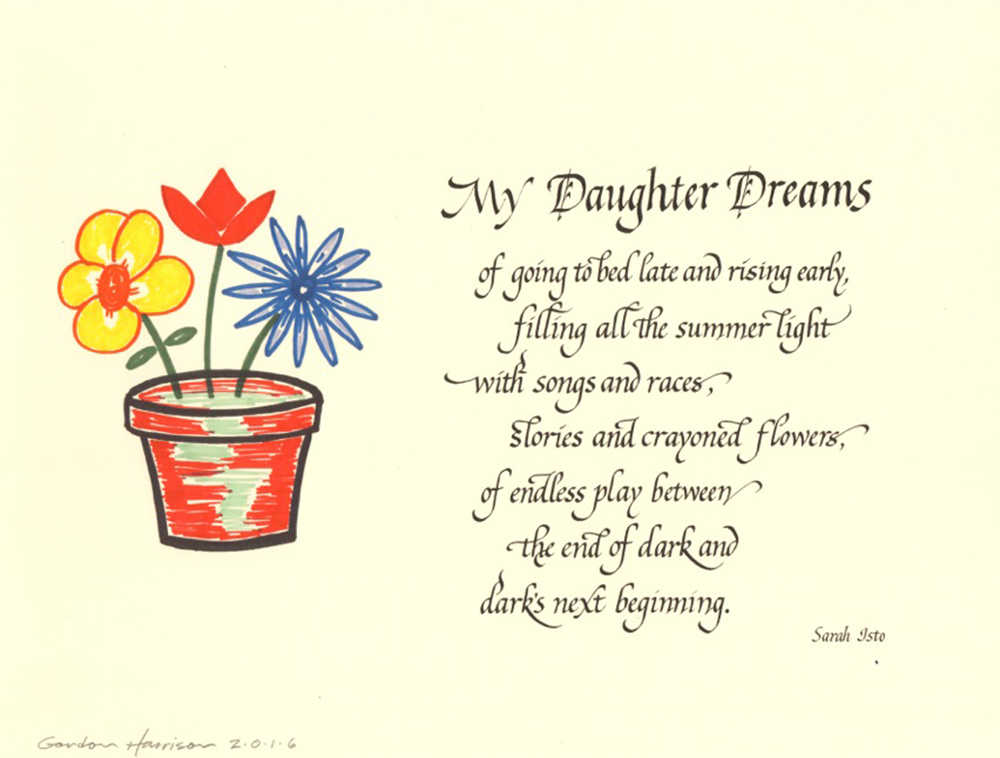 My Daughter Dreams
of going to bed late and rising early,
filling all the summer light
with songs and races,
stories and crayoned flowers,
of endless play between
the end of dark and
dark's next beginning.
Sarah Isto
Gordon Harrison 2.0.1.6